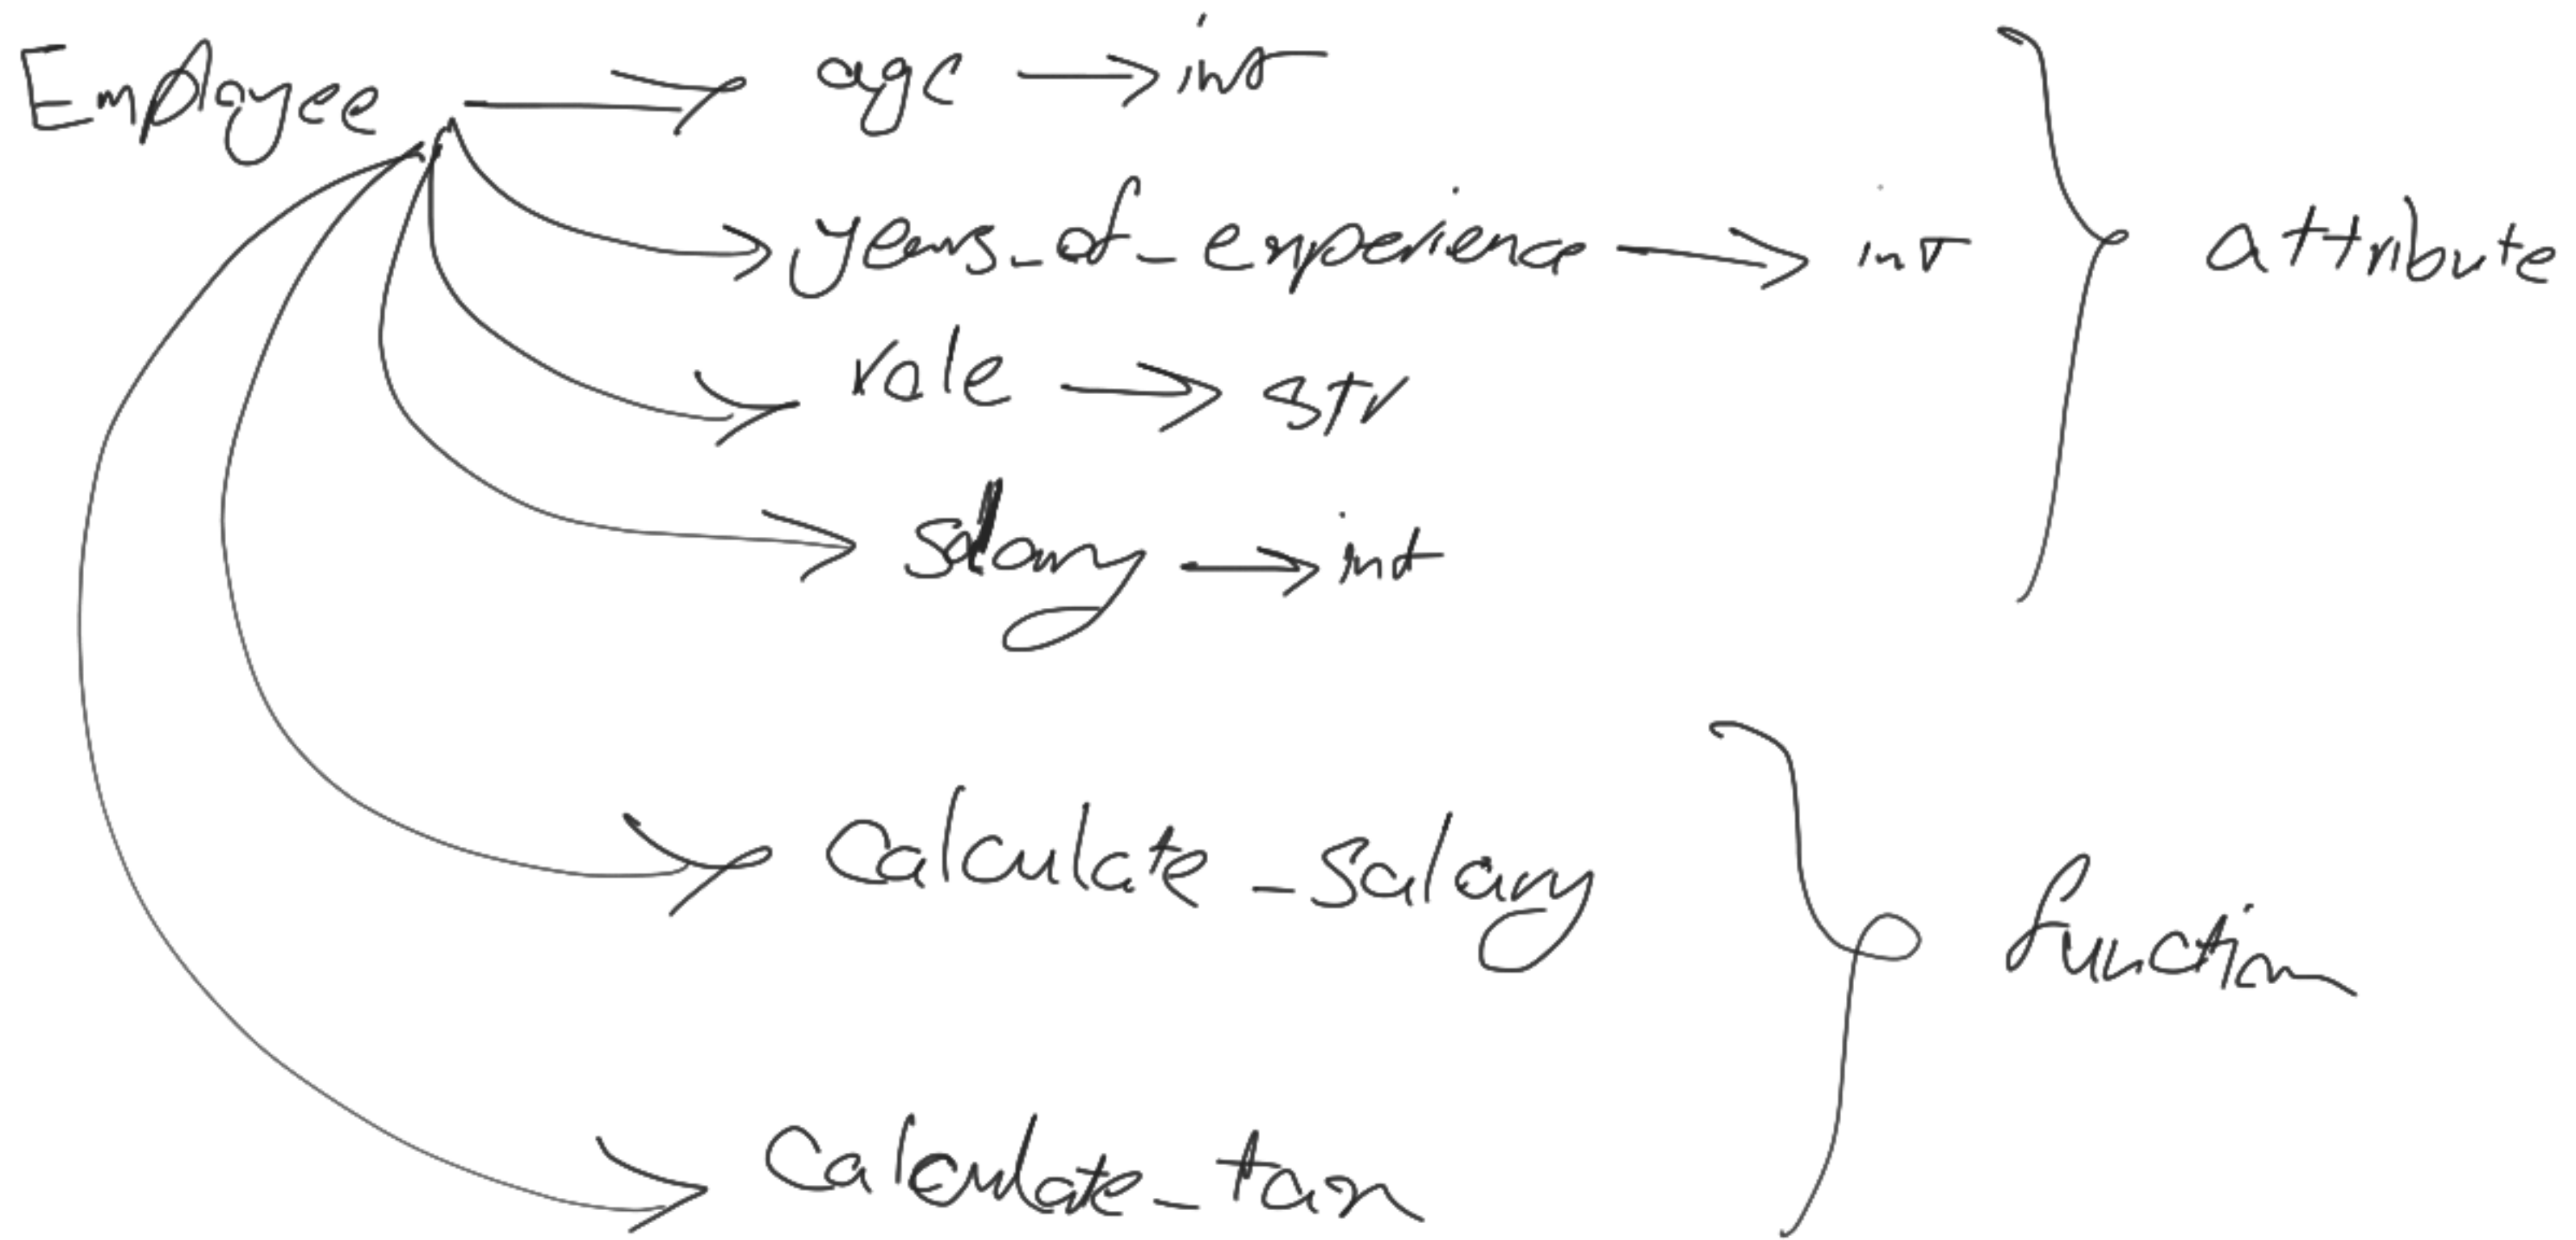 Employee → age → int
years_of_experience → int
role → str
salary → int
attribute
calculate_salary
function
calculate_tax